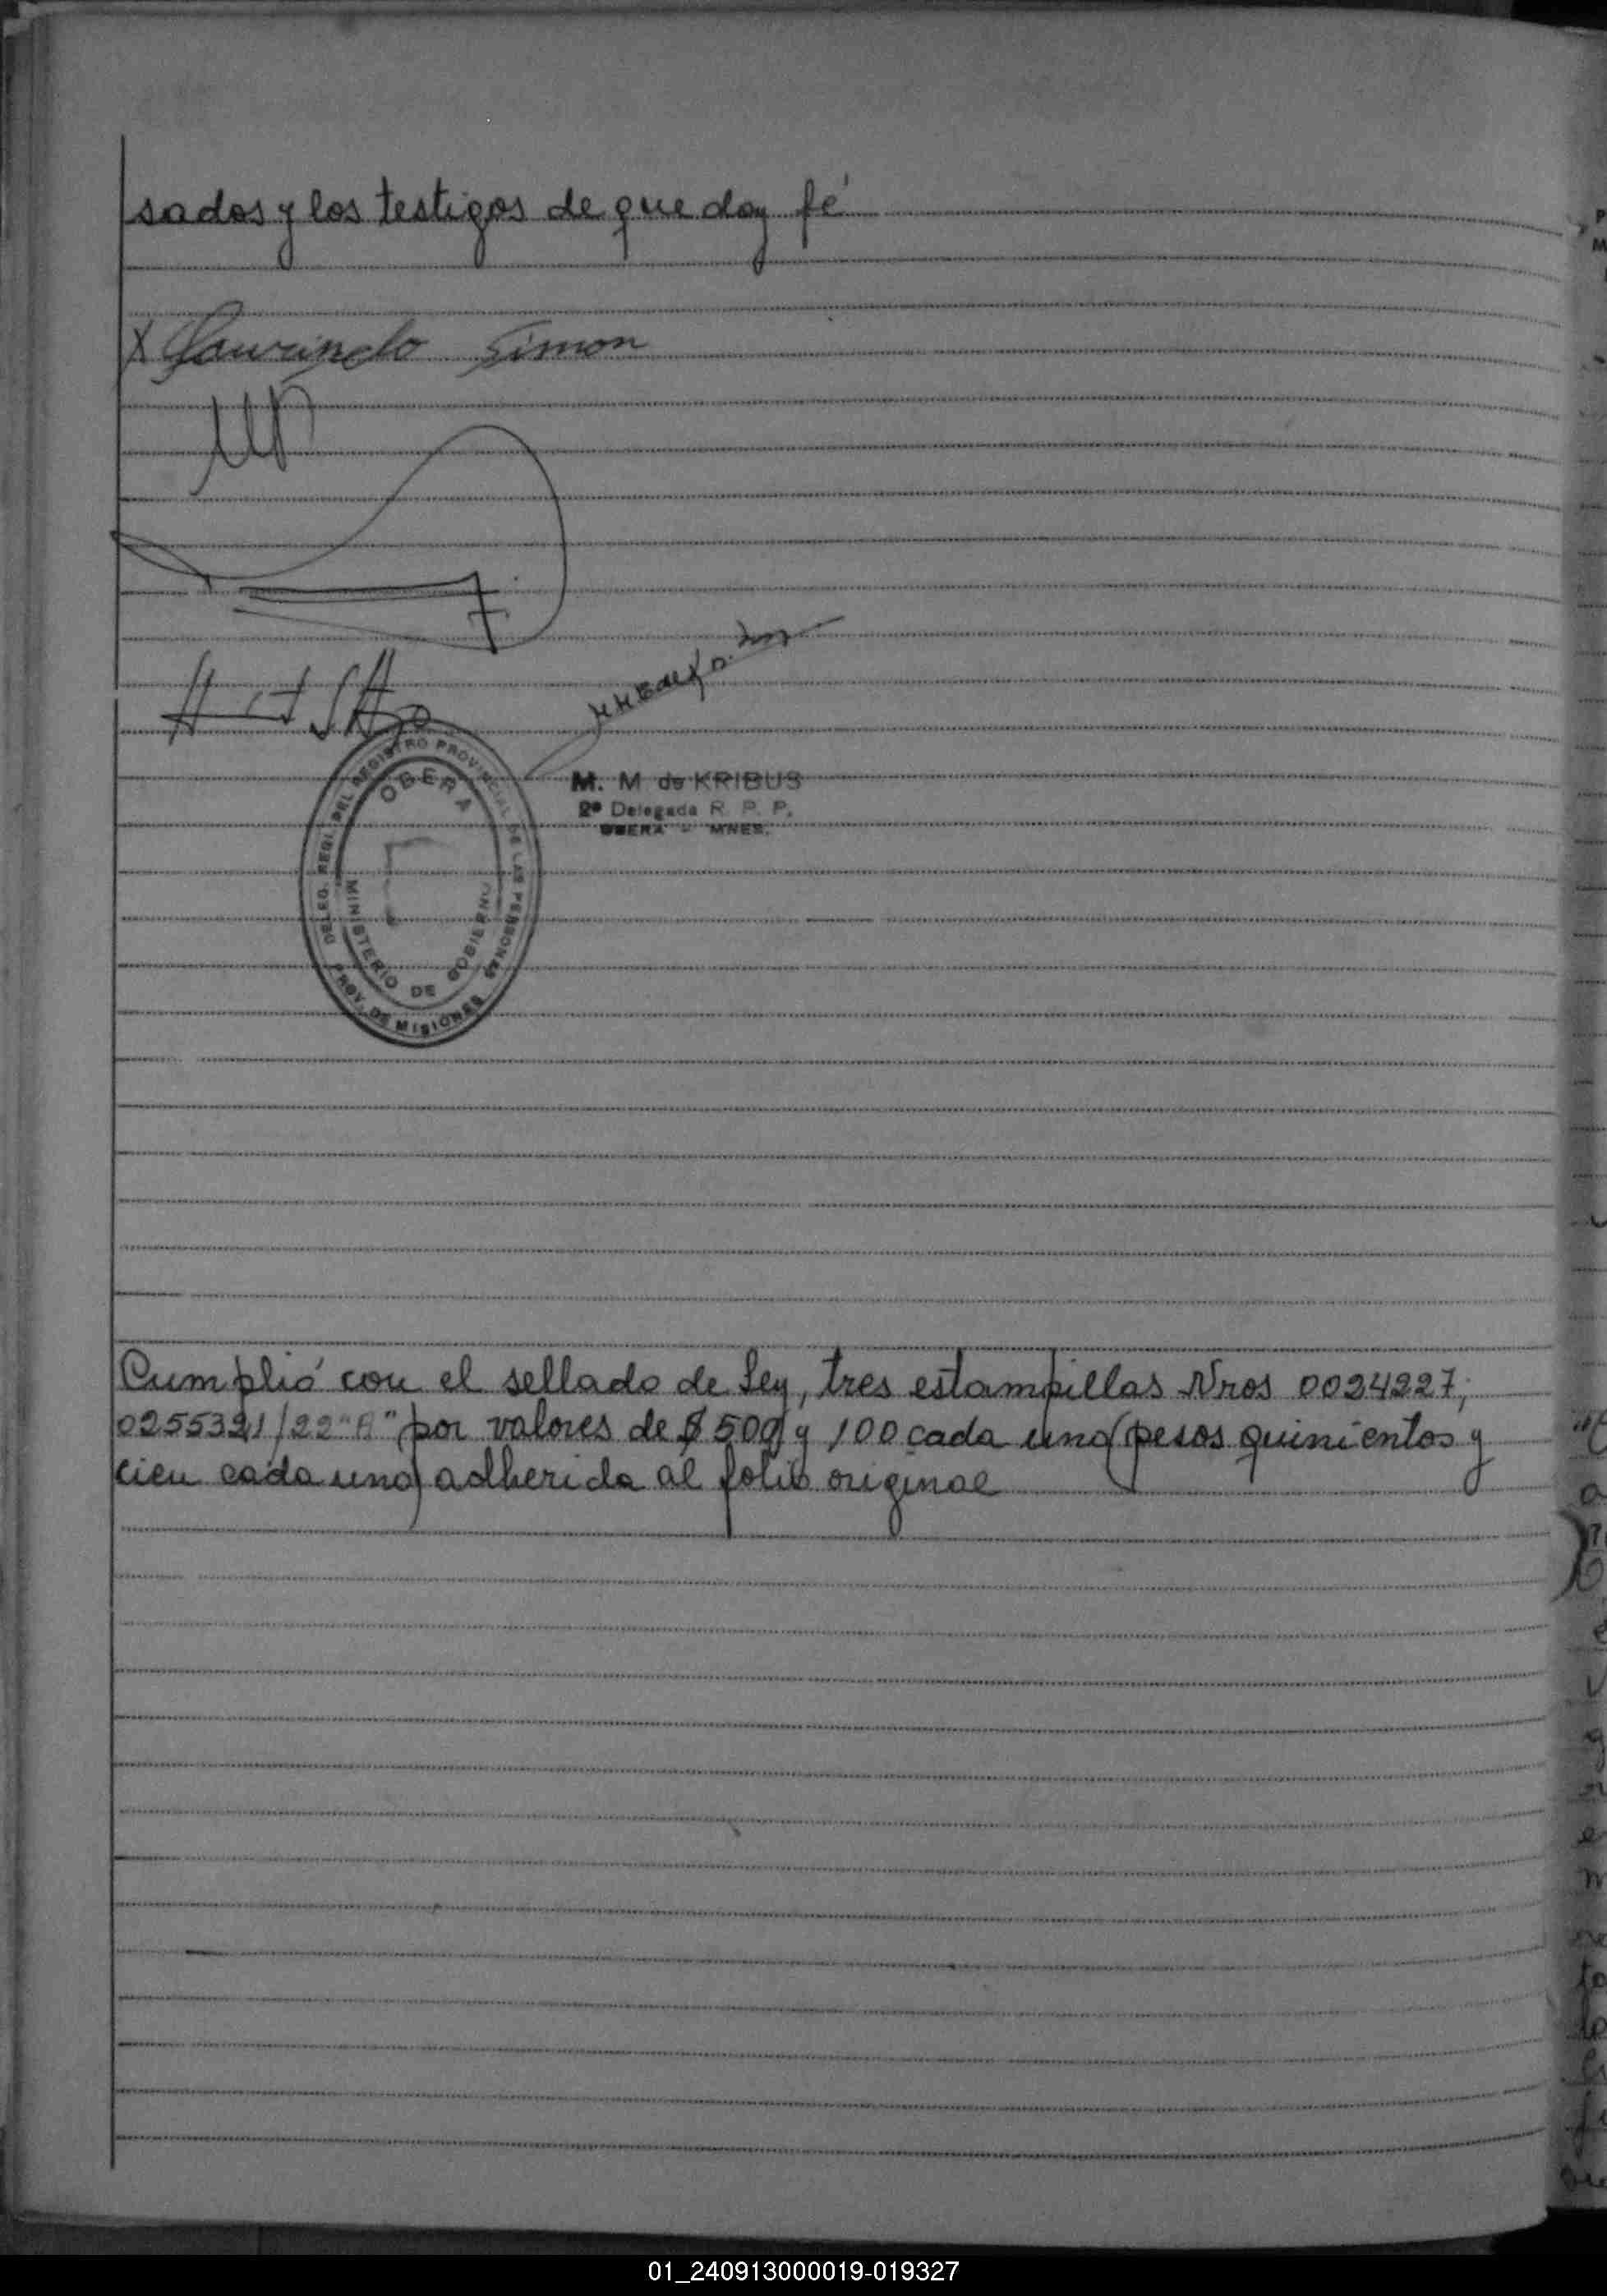 sados y los testigos de que doy fé
X Laurindo Simon
M. M de KRIBUS
2ª Delegada R. P. P.
OBERA - MNES.
DELEG. REGI. DEL REGISTRO PROVINCIAL DE LAS PERSONAS
OBERA
MINISTERIO DE GOBIERNO
PROV. DE MISIONES
Cumplió con el sellado de Ley, tres estampillas Nros 0024227;
0255321/22 "A" por valores de $ 500 y 100 cada una (pesos quinientos y
cien cada una) adherida al folio original
01_240913000019-019327